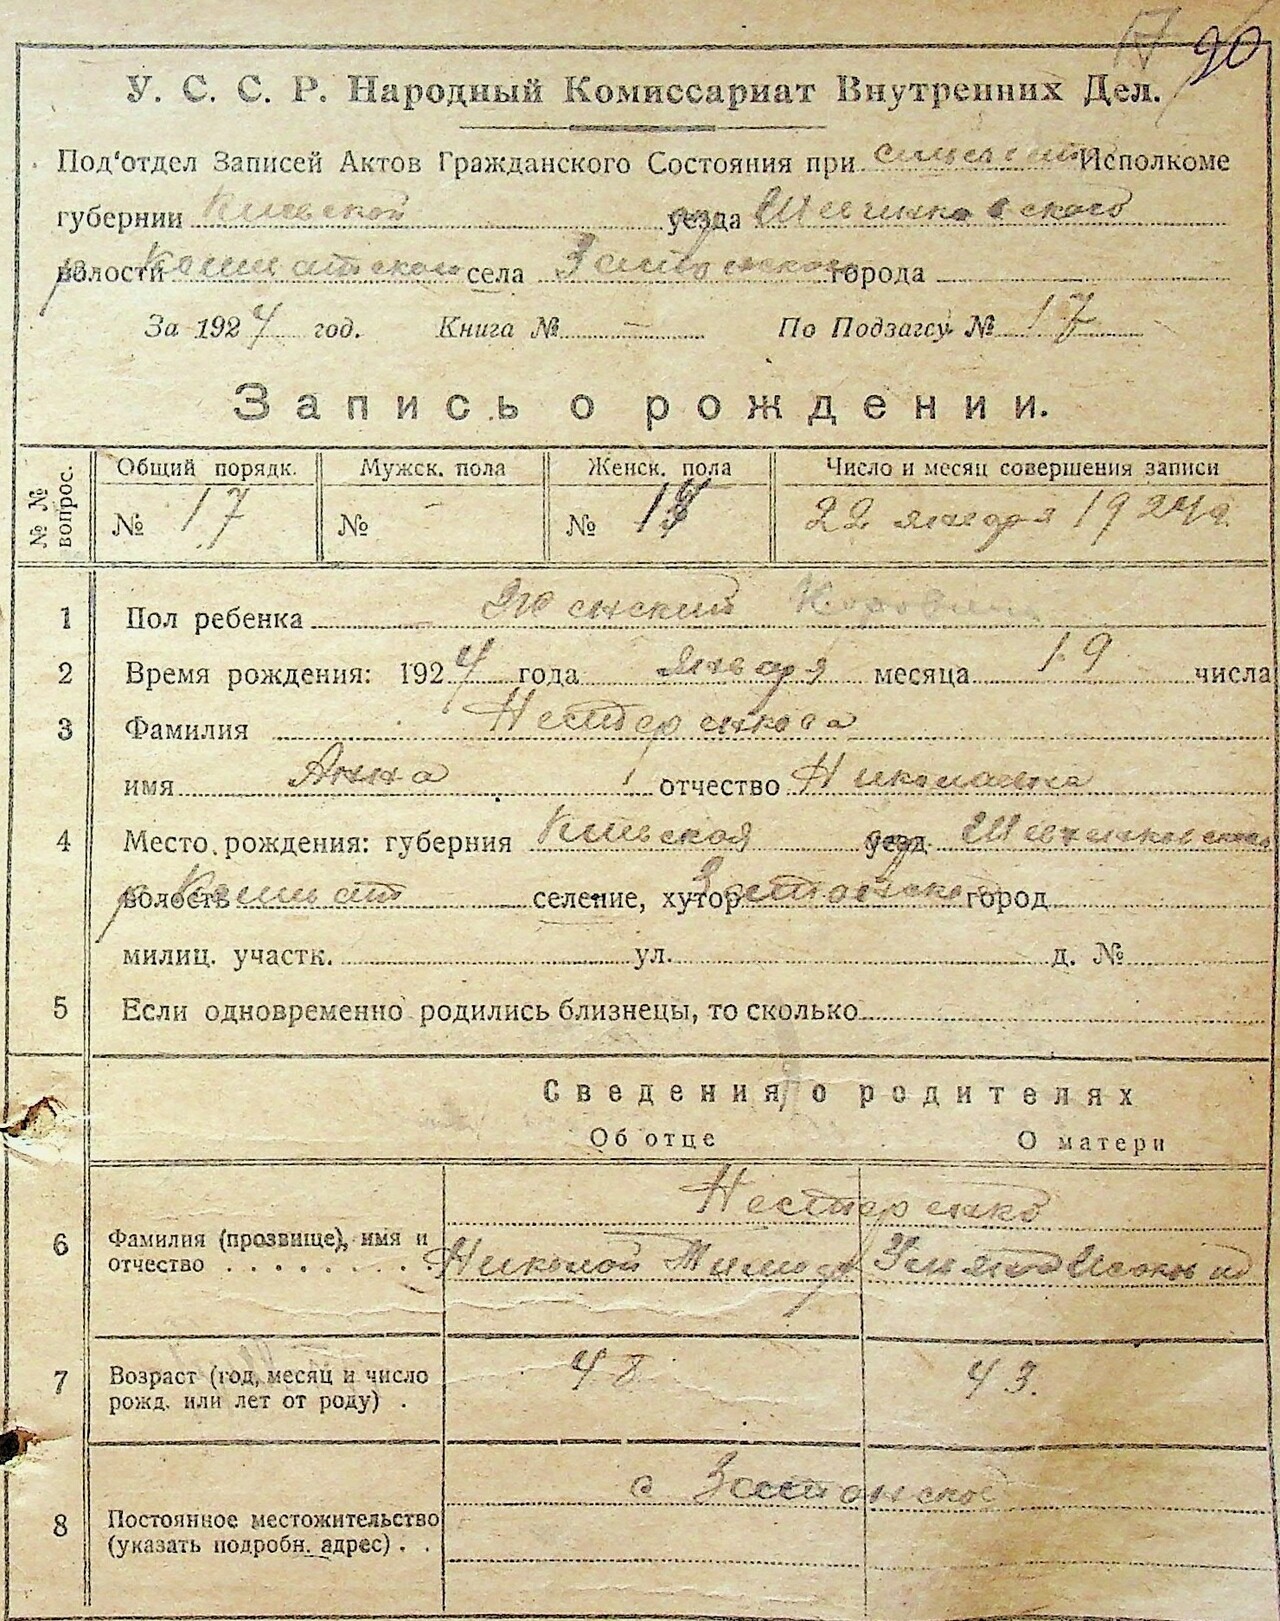 90
У. С. С. Р. Народный Комиссариат Внутренних Дел.
Под'отдел Записей Актов Гражданского Состояния при Исполкоме
губернии Киевской уезда Шевченковского
волости села города
За 1924 год. Книга № – По Подзагсу № 17
Запись о рождении.
№ № вопрос. Общий порядк. Мужск. пола Женск. пола Число и месяц совершения записи
№ 17 № - № 22 января 1924 г.
1 Пол ребенка Женский
2 Время рождения: 1924 года января месяца 19 числа
3 Фамилия Нестеренкова
имя Анна отчество Николаевна
4 Место рождения: губерния Киевская уезд Шевченковский
волость селение, хутор город
милиц. участк. ул. д. №
5 Если одновременно родились близнецы, то сколько
Сведения о родителях
Об отце О матери
Нестеренко
6 Фамилия (прозвище), имя и
отчество Николай Тимоф
7 Возраст (год, месяц и число 48 43.
рожд. или лет от роду) .
с
8 Постоянное местожительство
(указать подробн. адрес) . .